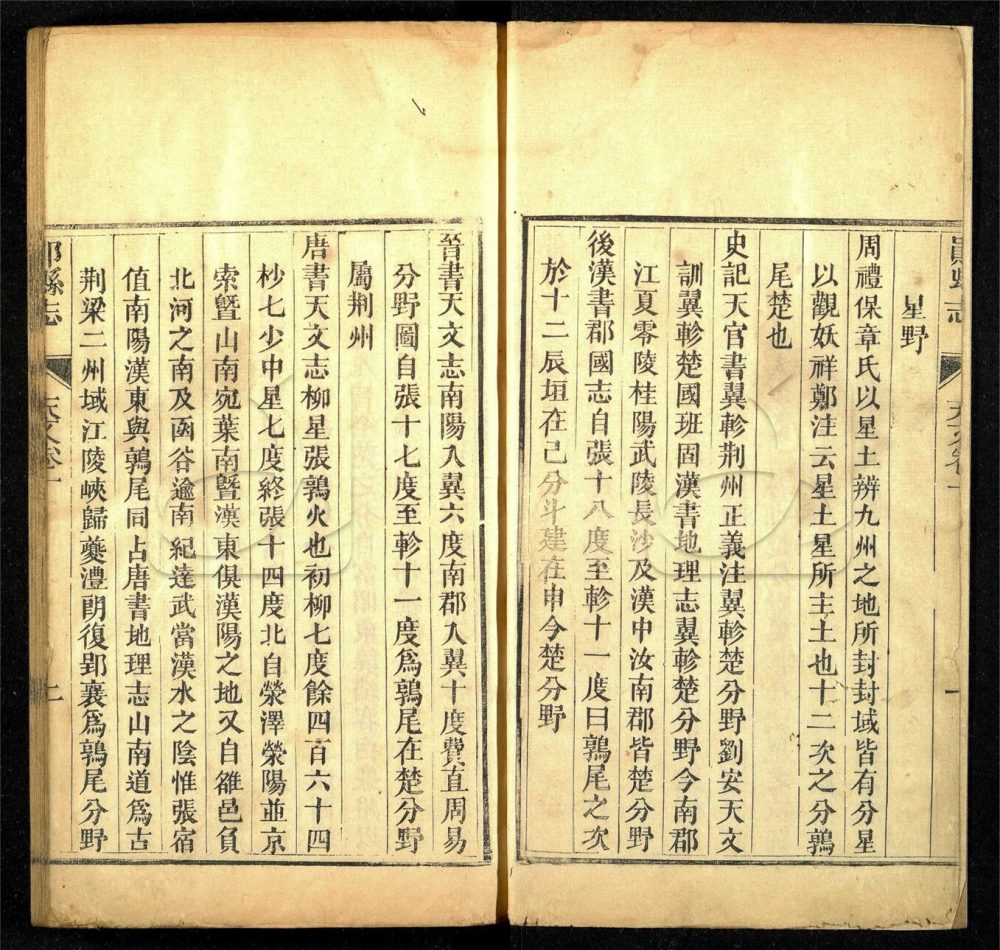 星野
周禮保章氏以星土辨九州之地所封封域皆有分星
以觀妖祥鄭注云星土星所主土也十二次之分鶉
尾楚也
史記天官書翼軫荆州正義注翼軫楚分野劉安天文
訓翼軫楚國班固漢書地理志翼軫楚分野今南郡
江夏零陵桂陽武陵長沙及漢中汝南郡皆楚分野
後漢書郡國志自張十八度至軫十一度曰鶉尾之次
於十二辰垣在己分斗建在申今楚分野
一
晉書天文志南陽入翼六度南郡入翼十度費直周易
分野圖自張十七度至軫十一度爲鶉尾在楚分野
屬荆州
唐書天文志柳星張鶉火也初柳七度餘四百六十四
杪七少中星七度終張十四度北自滎澤滎陽並京
索暨山南宛葉南暨漢東俱漢陽之地又自雒邑負
北河之南及函谷逾南紀達武當漢水之陰惟張宿
值南陽漢東與鶉尾同占唐書地理志山南道爲古
荆梁二州域江陵峽歸夔澧朗復郢襄爲鶉尾分野
縣志